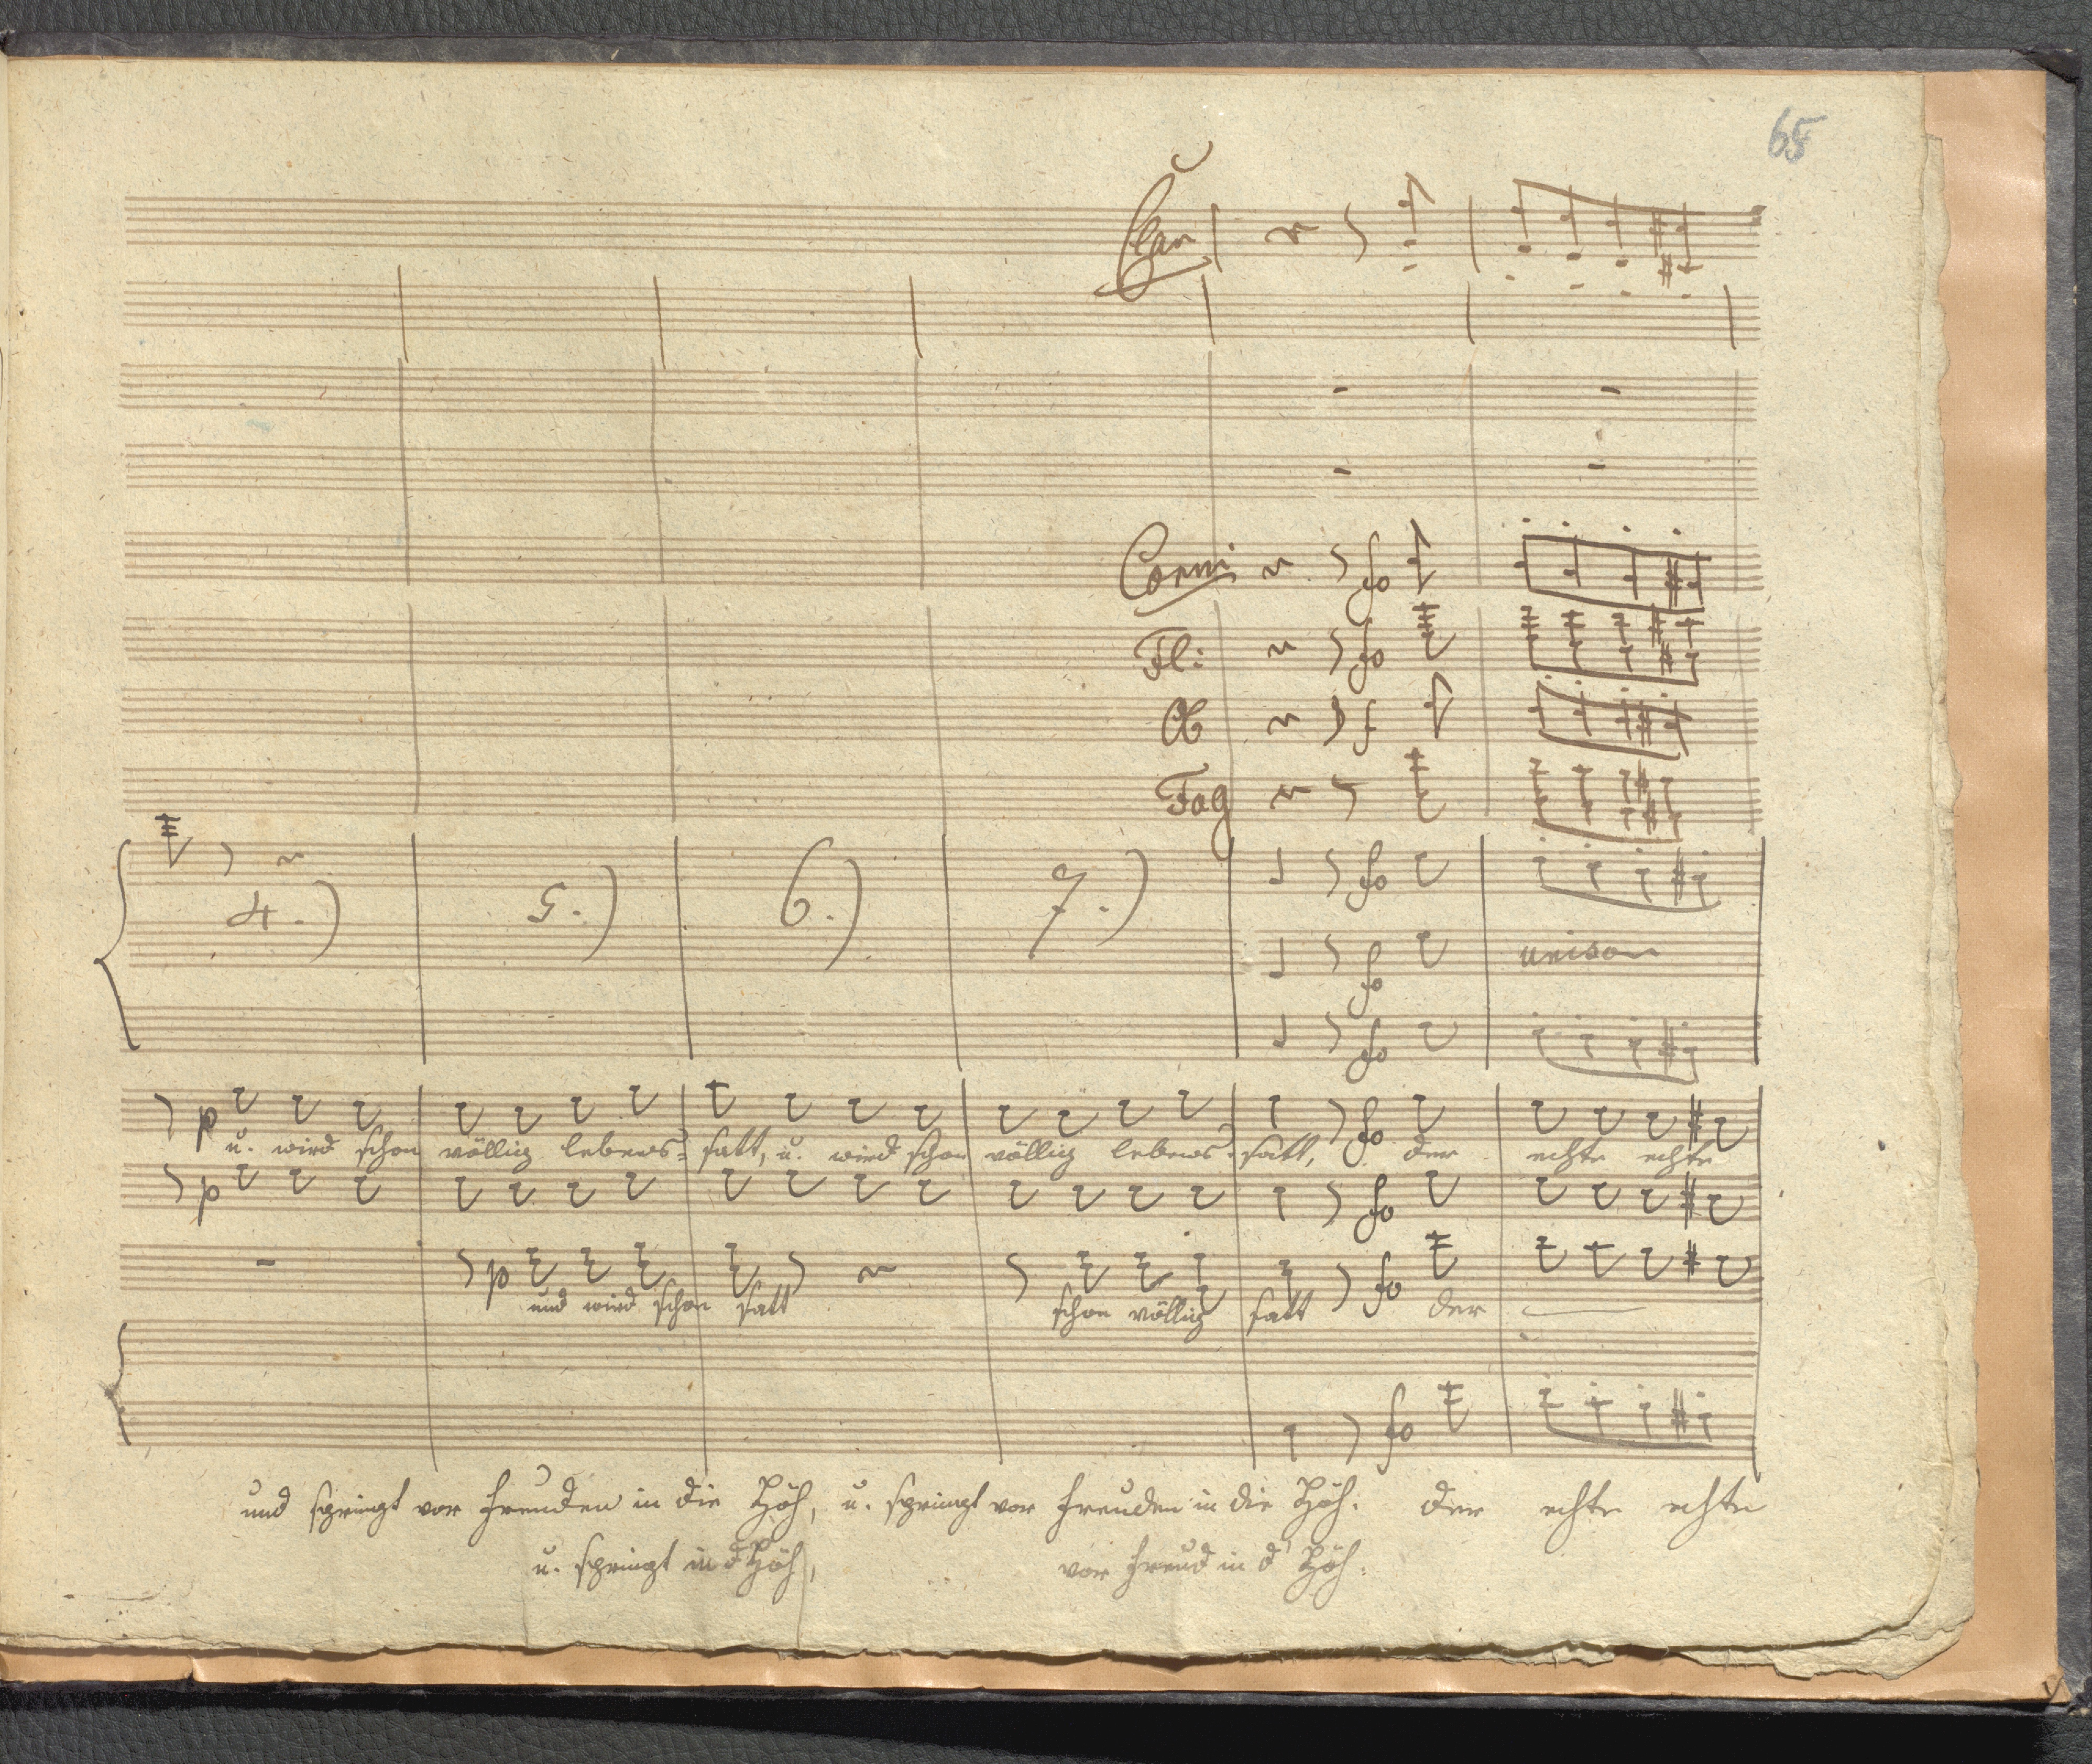 65
Clar
Corni fo
Fl: fo
Ob f
Fag
4.) 5.) 6.) 7.) fo
fo unison
fo
p fo
u. wird schon völlig lebens= satt, u. wird schon völlig lebens= satt, der echte echte
p fo
p fo
und wird schon satt schon völlig satt der
fo
und springt vor Freuden in die Höh, u. springt vor Freuden in die Höh. der echte echte
u. springt in d' Höh, vor Freud in d' Höh.